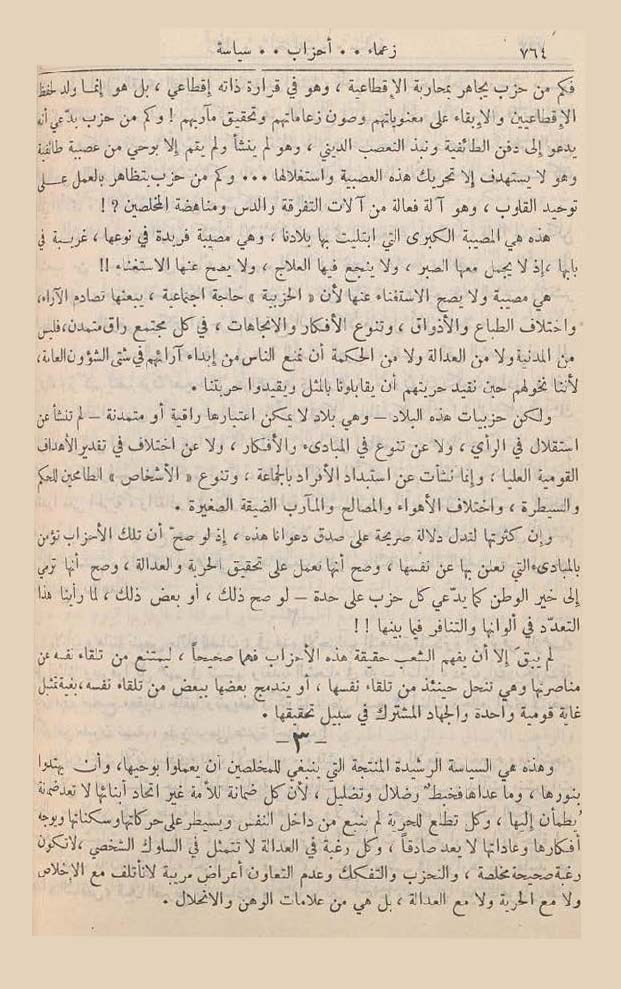 ٧٦٤ زعماء ٠٠ أحزاب ٠٠ سياسة
فكم من حزب يجاهر بمحاربة الإقطاعية ، وهو في قرارة ذاته إقطاعي ، بل هو إنما ولد لحفظ
الإقطاعيين والإبقاء على معنوياتهم وصون زعاماتهم وتحقيق مآربهم ! وكم من حزب يدّعي أنه
يدعو إلى دفن الطائفية ونبذ التعصب الديني ، وهو لم ينشأ ولم يقم إلا بوحي من عصبية طائفية
وهو لا يستهدف إلا تحريك هذه العصبية واستغلالها ٠٠٠ وكم من حزب يتظاهر بالعمل عـلى
توحيد القلوب ، وهو آلة فعالة من آلات التفرقة والدس ومناهضة المخلصين ? !
هذه هي المصيبة الكبرى التي ابتليت بها بلادنا ، وهي مصيبة فريدة في نوعها ، غريبـة في
بابها ، إذ لا يجمل معها الصبر ، ولا ينجع فيها العلاج ، ولا يصح عنها الاستغناء !!
هي مصيبة ولا يصح الاستغناء عنها لأن « الحزبية » حاجة اجتماعية ، يبعثها تصادم الآراء،
واختلاف الطباع والأذواق ، وتنوع الأفكار والاتجاهات ، في كل مجتمع راق متمدن، فليس
من المدنية ولا من العدالة ولا من الحكمة أن نمنع الناس من إبداء آرائهم في شتى الشؤون العامة،
لأننا نخولهم حين نقيد حريتهم أن يقابلونا بالمثل ويقيدوا حريتنا ٠
ولكن حزبيات هذه البلاد – وهي بلاد لا يمكن اعتبارها راقية أو متمدنة – لم تنشأ عن
استقلال في الرأي ، ولا عن تنوع في المبادىء والأفكار ، ولا عن اختلاف في تقدير الأهداف
القومية العليا ، وإنما نشأت عن استبداد الأفراد بالجماعة ، وتنوع « الأشخاص » الطامحين للحكم
والسيطرة ، واختلاف الأهواء والمصالح والمآرب الضيقة الصغيرة ٠
وإن كثرتها لتدل دلالة صريحة على صدق دعوانا هذه ، إذ لو صحّ أن تلك الأحزاب تؤمن
بالمبادىء التي تعلن بها عن نفسها ، وصح أنها تعمل على تحقيق الحرية والعدالة ، وصح أنها ترمي
إلى خير الوطن كما يدّعي كل حزب على حدة – لو صح ذلك ، أو بعض ذلك ، لما رأينا هذا
التعدّد في ألوانها والتنافر فيما بينها ! !
لم يبقَ إلا أن يفهم الشعب حقيقة هذه الأحزاب فهماً صحيحاً ، ليمتنع من تلقاء نفسه عن
مناصرتها وهي تنحل حينئذ من تلقاء نفسها ، أو يندمج بعضها ببعض من تلقاء نفسه،بغية تمثل
غاية قومية واحدة والجهاد المشترك في سبيل تحقيقها ٠
– ٣ –
وهذه هي السياسة الرشيدة المنتجة التي ينبغي للمخلصين أن يعملوا بوحيها، وأن يهتدوا
بنورها ، وما عداها فخبطٌ وضلال وتضليل ، لأن كل ضمانة للأمة غير اتحاد أبنائها لا تعد ضمانة
تُطمأن إليها ، وكل تطلع للحرية لم ينبع من داخل النفس ويسيطر على حركاتها وسكناتها ويوجه
أفكارها وعاداتها لا يعد صادقاً ، وكل رغبة في العدالة لا تتمثل في السلوك الشخصي ، لا تكون
رغبة صحيحة مخلصة ، والتحزب والتفكك وعدم التعاون أعراض مريبة لا تأتلف مع الإخلاص
ولا مع الحرية ولا مع العدالة ، بل هي من علامات الوهن والانحلال ٠